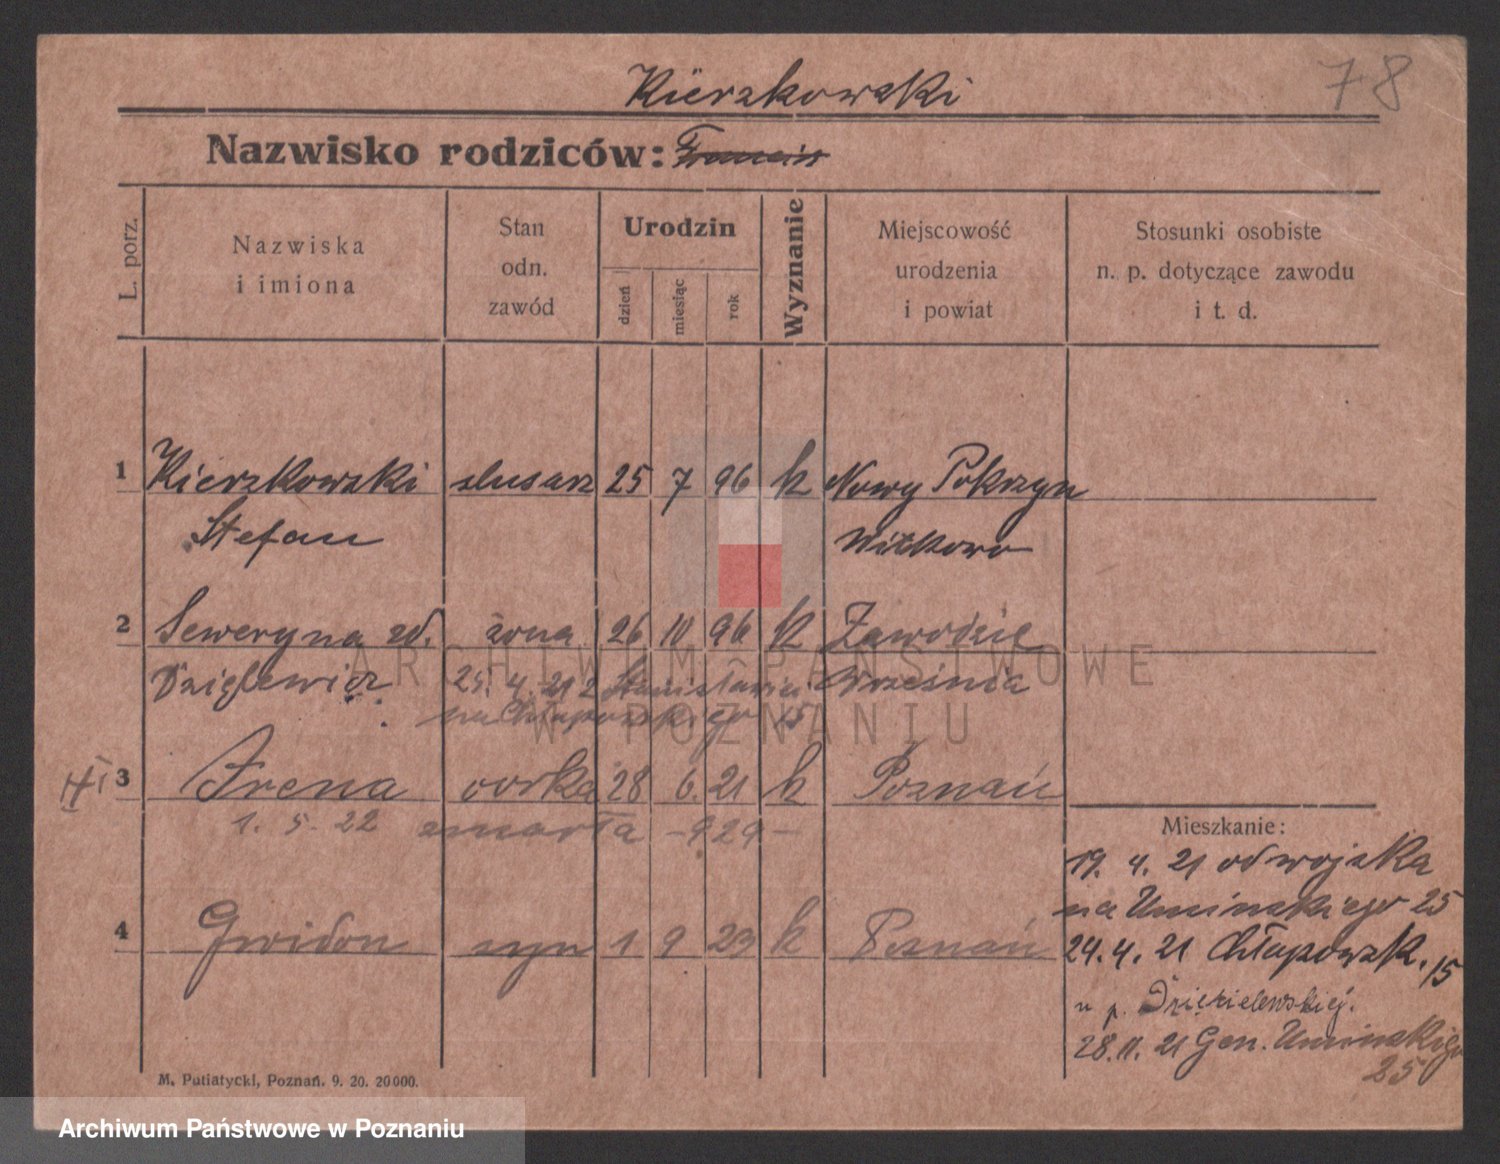 Kierzkowski
78
Nazwisko rodziców: Francis
L. porz.
Nazwiska
i imiona
Stan
odn.
zawód
Urodzin
dzień
miesiąc
rok
Wyznanie
Miejscowość
urodzenia
i powiat
Stosunki osobiste
n. p. dotyczące zawodu
i t. d.
1 Kierzkowski slusarz 25 7 96 k Nowy Pokrzyn
Stefan Witkowo
2 Seweryna zd. żona 26 10 96 k Zawodzie
25. 4. 21 z Września
na Chłapowskiego 15
3 Irena corka 28 6. 21 k Poznań
1. 5. 22 zmarła - 929 -
4 Gwidon syn 1 9 23 k Poznań
Mieszkanie:
19. 4. 21 od wojska
na Umińskiego 25
24. 4. 21 Chłapowsk. 15
u p. Dzięzielewskiej.
28. 11. 21 Gen. Umińskiego
25
M. Putiatycki, Poznań. 9. 20. 20000.
ARCHIWUM PAŃSTWOWE
W POZNANIU
Archiwum Państwowe w Poznaniu